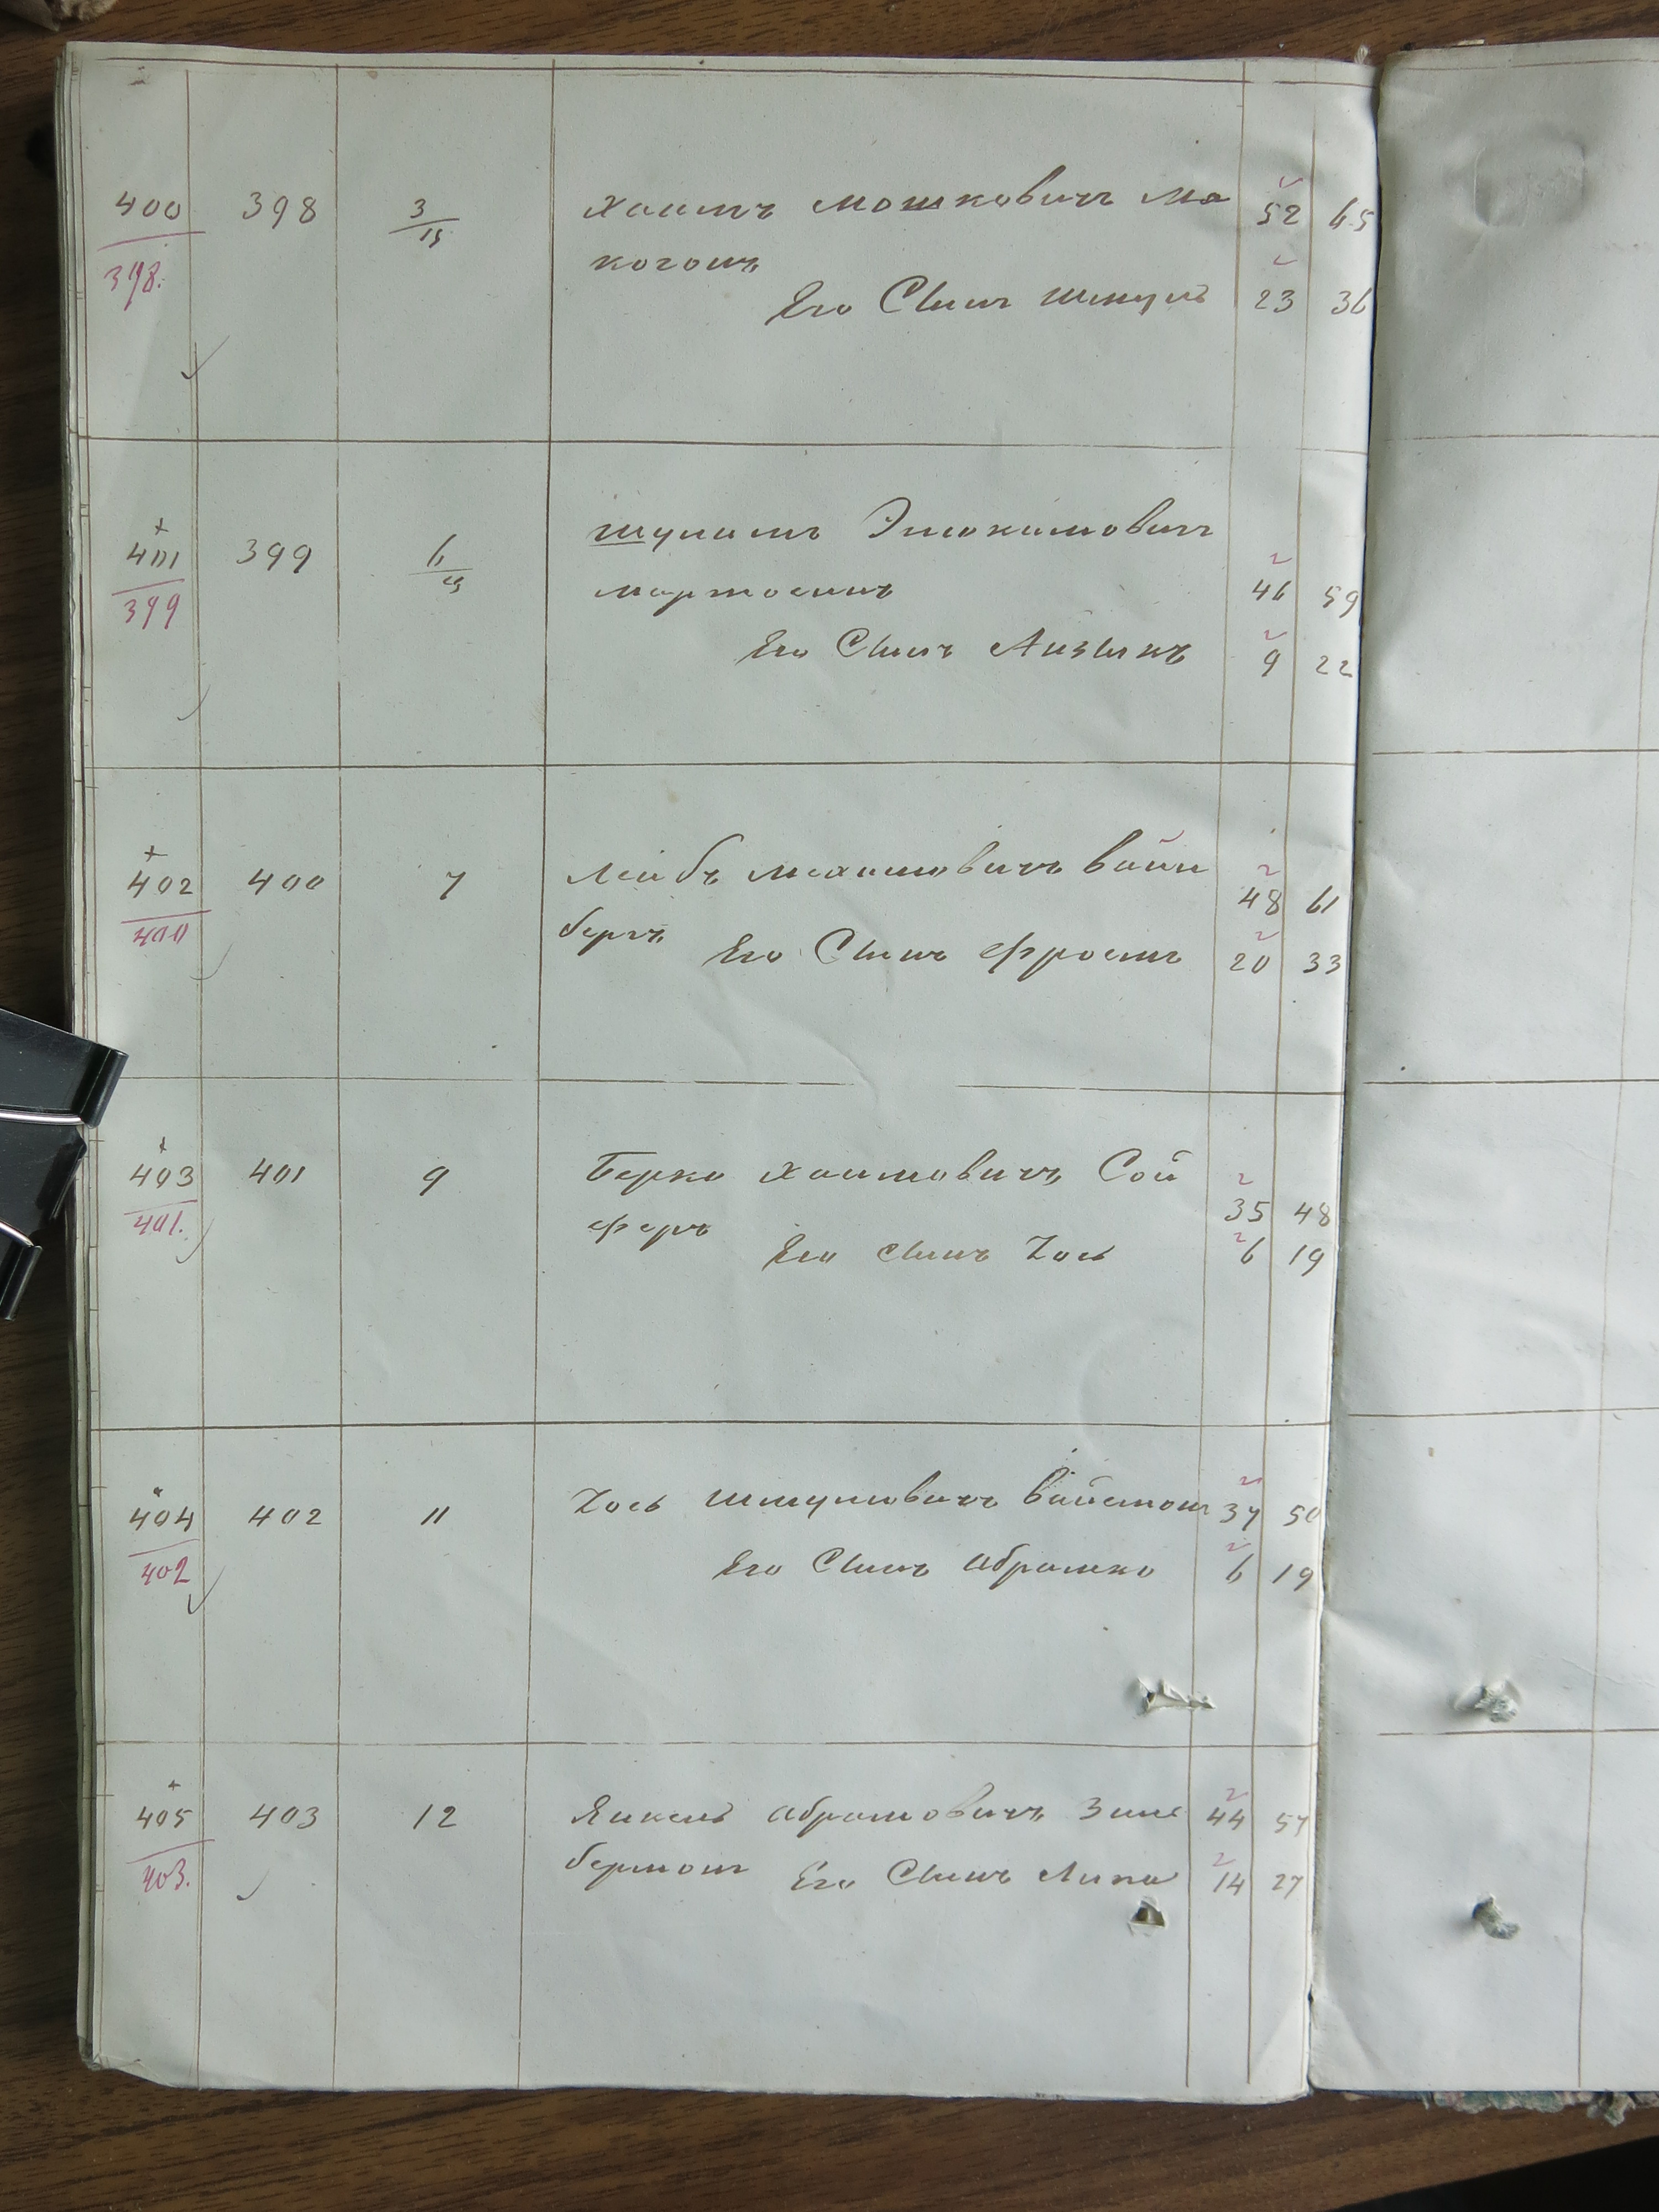 400 398 3/15 Хаимъ Мошковичъ Ма 52 65
398. когонъ
Его Сынъ Шмуль 23 36
401 399 6/25 Шулимъ
399 46 59
Его Сынъ Айзыкъ 9 22
402 400 7 Лейбъ вайн 48 61
400 бергъ Его Сынъ Фроимъ 20 33
403 401 9 Берко Хаимовичъ Сой 35 48
401. феръ Его Сынъ Хось 6 19
404 402 11 Хось Шмулювичъ 37 50
402 Его Сынъ Абрамко 6 19
405 403 12 Янкель Абрамовичъ Зиль 44 57
403. берманъ Его Сынъ Липа 14 27